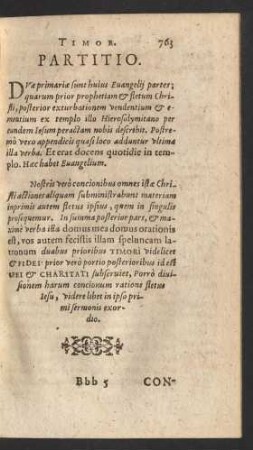 TIMOR. 763
PARTITIO.
DVæ primariæ sunt huius Euangelij partes;
quarum prior prophetiam & fletum Chri-
sti, posterior exturbationem vendentium & e-
mentium ex templo illo Hierosolymitano per
eundem Iesum peractam nobis describit. Postre-
mò verò appendicis quasi loco adduntur vltima
illa verba. Et erat docens quotidie in tem-
plo. Hæc habet Euangelium.
Nostris verò concionibus omnes istæ Chri-
sti actiones aliquam subministrabunt materiam
inprimis autem fletus ipsius, quem in singulis
prosequemur. In summa posterior pars, & ma-
ximè verba illa domus mea domus orationis
est, vos autem fecistis illam speluncam la-
tronum duabus prioribus TIMORI videlicet
& FIDEI prior verò portio posterioribus id est
SPEI & CHARITATI subseruiet, Porrò diui-
sionem harum concionum ratione fletus
Iesu, videre libet in ipso pri-
mi sermonis exor-
dio.
Bbb 5 CON-